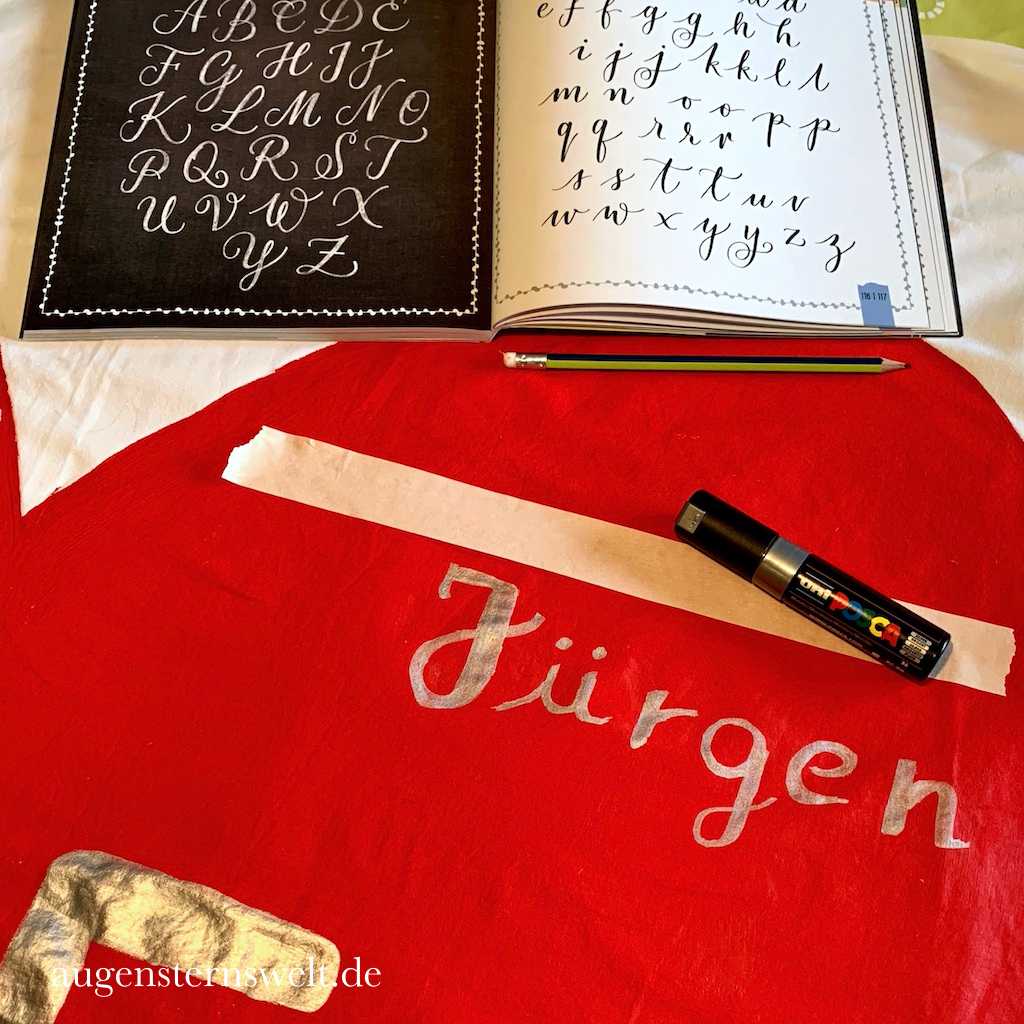 A B C D E
F G H I J
K L M N O
P Q R S T
U V W X
Y Z
e f f g g h h
i j j k k l l
m n o o p p
q q r r r
s s t t u v
w w x y y z z
116 | 117
uni POSCA
Jürgen
augensternswelt.de